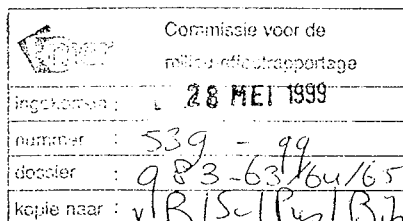 Commissie voor de
milieu-effectrapportage
ingekomen : 28 MEI 1999
nummer : 539 - 99
dossier : 983-63/64/65
kopie naar :